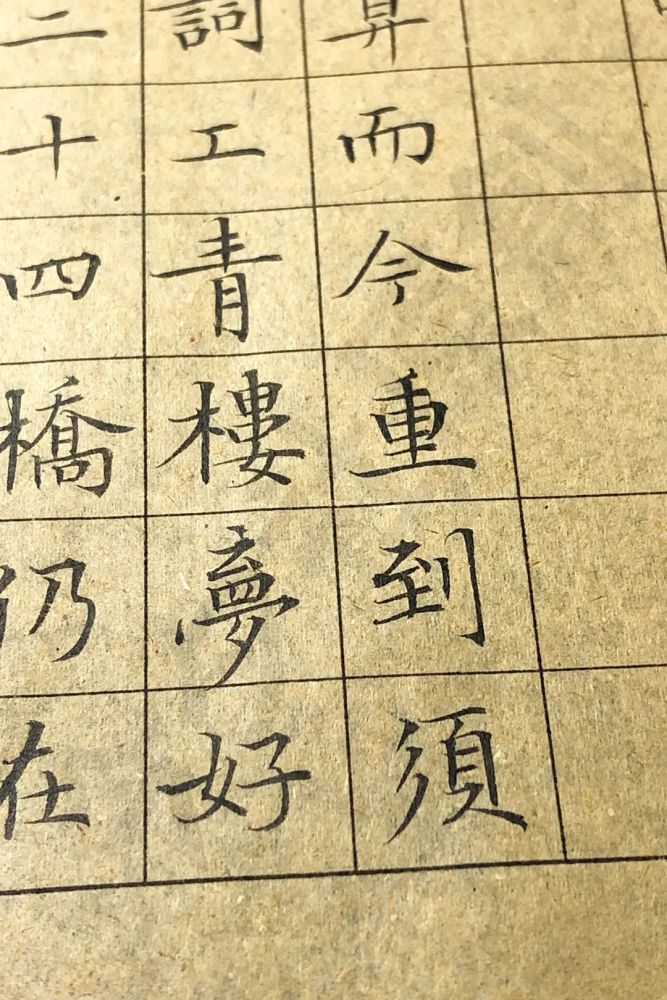 算而今重到須
詞工青樓夢好
二十四橋仍在